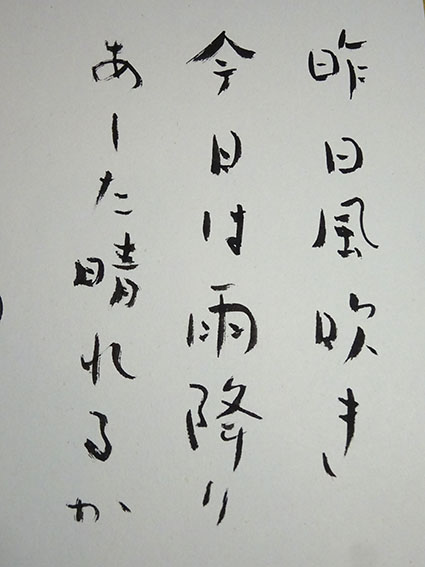 昨日風吹き
今日は雨降り
あーた晴れるか